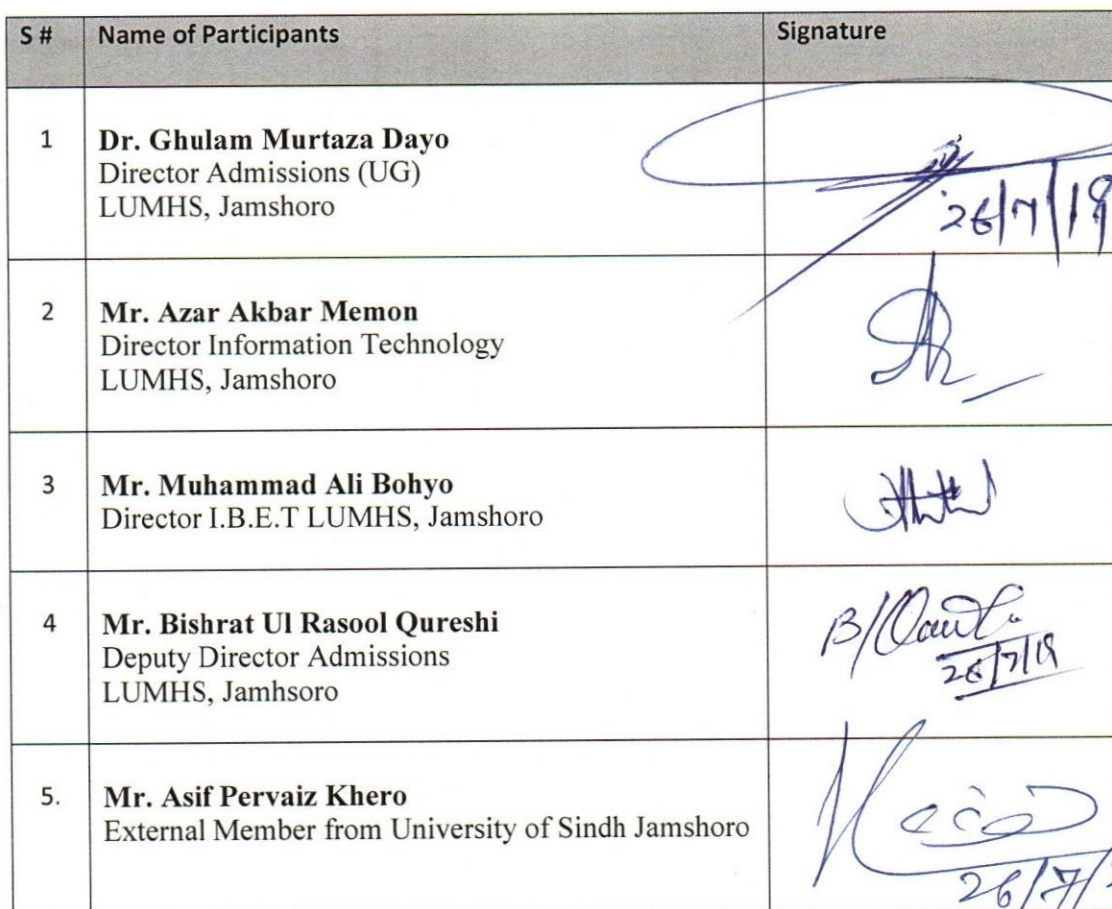 S # Name of Participants Signature
1 Dr. Ghulam Murtaza Dayo
Director Admissions (UG)
LUMHS, Jamshoro
26/7/19
2 Mr. Azar Akbar Memon
Director Information Technology
LUMHS, Jamshoro
3 Mr. Muhammad Ali Bohyo
Director I.B.E.T LUMHS, Jamshoro
4 Mr. Bishrat Ul Rasool Qureshi
Deputy Director Admissions
LUMHS, Jamhsoro
26/7/19
5. Mr. Asif Pervaiz Khero
External Member from University of Sindh Jamshoro
26/7/